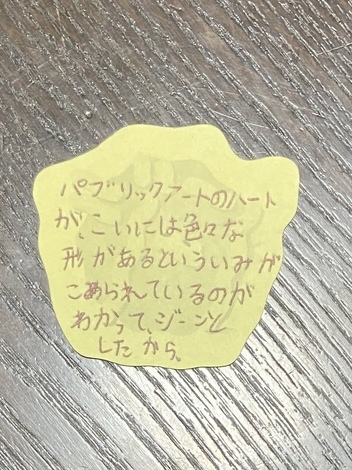 パブリックアートのハート
が、こいには色々な
形があるといういみが
こめられているのが
わかって、ジーンと
したから。